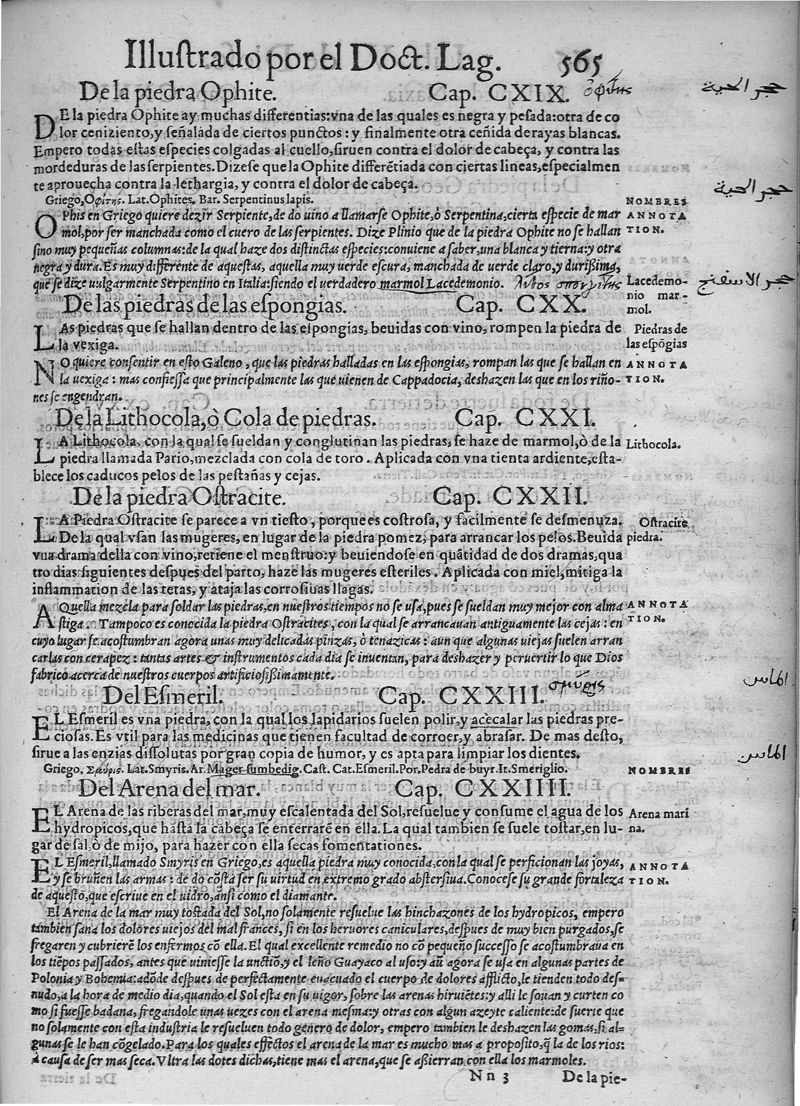 Illuſtrado por el Doct. Lag. 565
De la piedra Ophite. Cap. CXIX. ὀφίτης
حجر الحية
DE la piedra Ophite ay muchas differentias: vna de las quales es negra y peſada: otra de co
lor ceniziento, y ſeñalada de ciertos punctos: y finalmente otra ceñida de rayas blancas.
Empero todas eſtas eſpecies colgadas al cuello, ſiruen contra el dolor de cabeça, y contra las
mordeduras de las ſerpientes. Dizeſe que la Ophite differẽtiada con ciertas lineas, eſpecialmen
te aprouecha contra la lethargia, y contra el dolor de cabeça.
حجر الحية
Griego, Οφίτης. Lat. Ophites. Bar. Serpentinus lapis.
NOMBRES
OPhis en Griego quiere dezir Serpiente, de do uino a llamarſe Ophite, ò Serpentina, cierta eſpecie de mar
ANNOTA
mol, por ſer manchada como el cuero de las ſerpientes. Dize Plinio que de la piedra Ophite no ſe hallan
TION.
ſino muy pequeñas columnas: de la qual haze dos diſtinctas eſpecies: conuiene a ſaber, una blanca y tierna: y otra
negra y dura. Es muy differente de aqueſtas, aquella muy uerde eſcura, manchada de uerde claro, y duriſsima,
que ſe dize uulgarmente Serpentino en Italia: ſiendo el verdadero marmol Lacedemonio.
Lacedemo-
nio mar-
mol.
حجر الاسفنج
De las piedras de las eſpongias. Cap. CXX.
LAs piedras que ſe hallan dentro de las eſpongias, beuidas con vino, rompen la piedra de
la vexiga.
Piedras de
las eſpõgias
NO quiere conſentir en eſto Galeno, que las piedras halladas en las eſpongias, rompan las que ſe hallan en
ANNOTA
la uexiga: mas confieſſa que principalmente las que uienen de Cappadocia, deshazen las que en los riño-
TION.
nes ſe engendran.
De la Lithocola, ò Cola de piedras. Cap. CXXI.
LA Lithocola, con la qual ſe ſueldan y conglutinan las piedras, ſe haze de marmol, ò de la
Lithocola.
piedra llamada Pario, mezclada con cola de toro. Aplicada con vna tienta ardiente, eſta-
blece los caducos pelos de las peſtañas y cejas.
De la piedra Oſtracite. Cap. CXXII.
LA Piedra Oſtracite ſe parece a vn tieſto, porque es coſtroſa, y facilmente ſe deſmenuza.
Oſtracite
De la qual vſan las mugeres, en lugar de la piedra pomez, para arrancar los pelos. Beuida
piedra.
vna drama della con vino, retiene el menſtruo: y beuiendoſe en quãtidad de dos dramas, qua
tro dias ſiguientes deſpues del parto, haze las mugeres eſteriles. Aplicada con miel, mitiga la
inflammation de las tetas, y ataja las corroſiuas llagas.
AQuella mezcla para ſoldar las piedras, en nueſtros tiempos no ſe uſa, pues ſe ſueldan muy mejor con alma
ANNOTA
ſtiga. Tampoco es conocida la piedra Oſtracites, con la qual ſe arrancauan antiguamente las cejas: en
TION.
cuyo lugar ſe acoſtumbran agora unas muy delicadas pinzas, ò tenazicas: aun que algunas uiejas ſuelen arran
carlas con cerapez: tantas artes & inſtrumentos cada dia ſe inuentan, para deshazer y peruertir lo que Dios
fabricò acerca de nueſtros cuerpos artificioſiſsimamente.
Del Eſmeril. Cap. CXXIII. σμυρις
الماس
EL Eſmeril es vna piedra, con la qual los lapidarios ſuelen polir, y acecalar las piedras pre-
cioſas. Es vtil para las medicinas que tienen facultad de corroer, y abraſar. De mas deſto,
ſirue a las enzias diſſolutas por gran copia de humor, y es apta para limpiar los dientes.
الماس
Griego, Σμύρις. Lat. Smyris. Ar. Mager ſumbedig. Caſt. Cat. Eſmeril. Por. Pedra de buyr. It. Smeriglio.
NOMBRES
Del Arena del mar. Cap. CXXIIII.
EL Arena de las riberas del mar, muy eſcalentada del Sol, reſuelue y conſume el agua de los
Arena mari
hydropicos, que haſta la cabeça ſe enterraré en ella. La qual tambien ſe ſuele toſtar, en lu-
na.
gar de ſal, ò de mijo, para hazer con ella ſecas fomentationes.
EL Eſmeril, llamado Smyris en Griego, es aquella piedra muy conocida, con la qual ſe perficionan las joyas,
ANNOTA
y ſe bruñen las armas: de do cõſta ſer ſu virtud en extremo grado abſterſiua. Conoceſe ſu grande fortaleza
TION.
de aqueſto, que eſcriue en el uidro, anſi como el diamante.
El Arena de la mar muy toſtada del Sol, no ſolamente reſuelue las hinchazones de los hydropicos, empero
tambien ſana los dolores uiejos del mal frances, ſi en los heruores caniculares, deſpues de muy bien purgados, ſe
fregaren y cubrierẽ los enfermos cõ ella. El qual excellente remedio no cõ pequeño ſucceſſo ſe acoſtumbraua en
los tiẽpos paſſados, antes que uinieſſe la unctiõ, y el leño Guayaco al uſo: y aũ agora ſe uſa en algunas partes de
Polonia y Bohemia: adõde deſpues de perfectamente euacuado el cuerpo de dolores afflicto, le tienden todo deſ-
nudo, a la hora de medio dia, quando el Sol eſta en ſu uigor, ſobre las arenas hiruiẽtes: y alli le ſouan y curten co
mo ſi fueſſe badana, fregandole unas uezes con el arena meſma: y otras con algun azeyte caliente: de ſuerte que
no ſolamente con eſta induſtria le reſueluen todo género de dolor, empero tambien le deshazen las gomas, ſi al-
gunas ſe le han cõgelado. Para los quales effectos el arena de la mar es mucho mas a propoſito, q̃ la de los rios:
à cauſa de ſer mas ſeca. Vltra las dotes dichas, tiene mas el arena, que ſe aßierran con ella los marmoles.
Nn 3 De la pie-